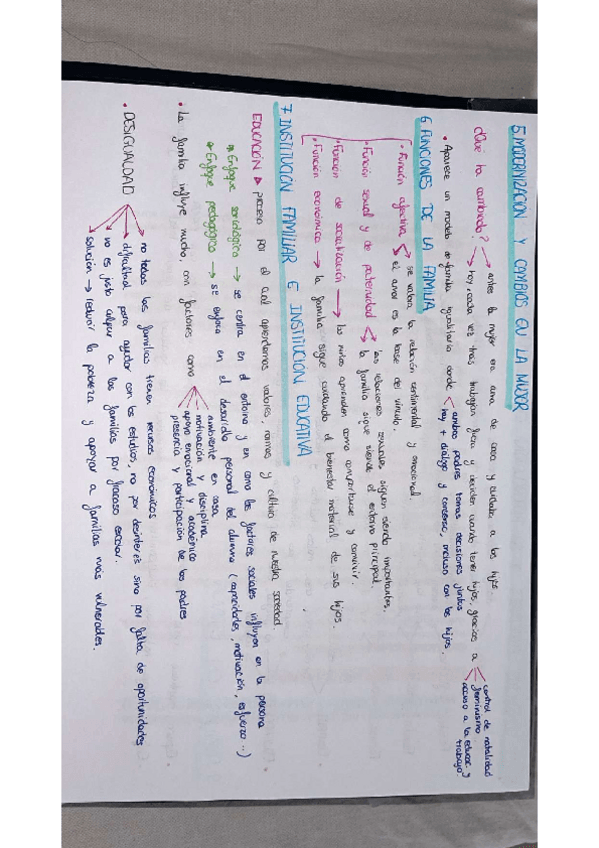 5. MODERNIZACION Y CAMBIOS EN LA MUJER
¿Qué ha cambiado? → antes la mujer era ama de casa y cuidaba a los hijos
→ hoy, cada vez más trabajan fuera y deciden cuando tener hijos, gracias a
control de natalidad
feminismo
acceso a la educac. y trabajo.
• Aparece un modelo de familia igualitario donde
ambos padres toman decisiones juntos
hay + diálogo y consenso, incluso con los hijos.
6. FUNCIONES DE LA FAMILIA
• Función afectiva
se valora la relación sentimental y emocional.
el amor es la base del vínculo.
• Función sexual y de paternidad
las relaciones sexuales siguen siendo importantes.
la familia sigue siendo el entorno principal.
• Función de socialización → los niños aprenden como comportarse y convivir.
• Función económica → la familia sigue cuidando el bienestar material de sus hijos.
7. INSTITUCIÓN FAMILIAR E INSTITUCION EDUCATIVA
EDUCACIÓN → proceso por el cual aprendemos valores, normas y cultura de nuestra sociedad.
Enfoque sociológico → se centra en el entorno y en como los factores sociales influyen en la persona
Enfoque pedagógico → se enfoca en el desarrollo personal del alumno (capacidades, motivación, esfuerzo...)
• La familia influye mucho, con factores como
ambiente en casa
motivación y disciplina
apoyo emocional y académico
presencia y participación de los padres
• DESIGUALDAD
no todas las familias tienen recursos económicos
dificultad para ayudar con los estudios, no por desinterés sino por falta de oportunidades
no es justo culpar a las familias por fracaso escolar.
solución → reducir la pobreza y apoyar a familias más vulnerables.